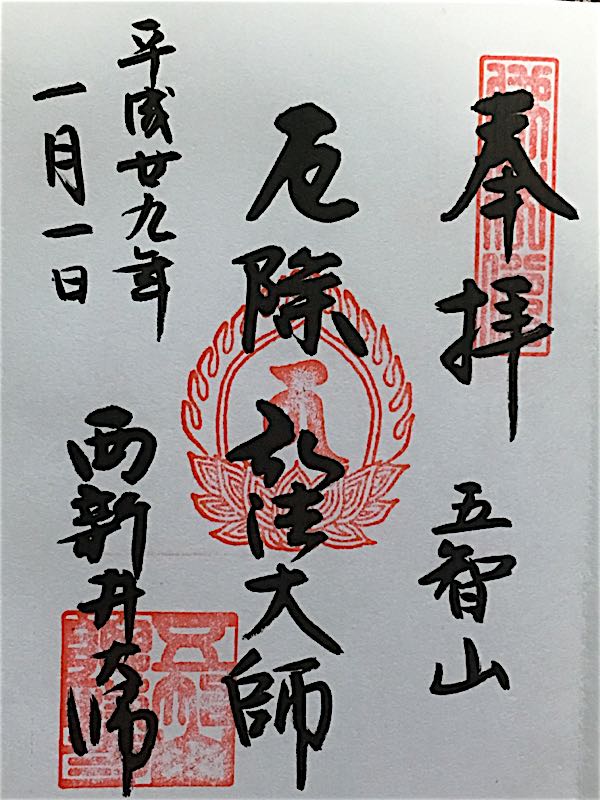 奉拝
五智山
厄除弘法大師
平成廿九年
一月一日
西新井大師